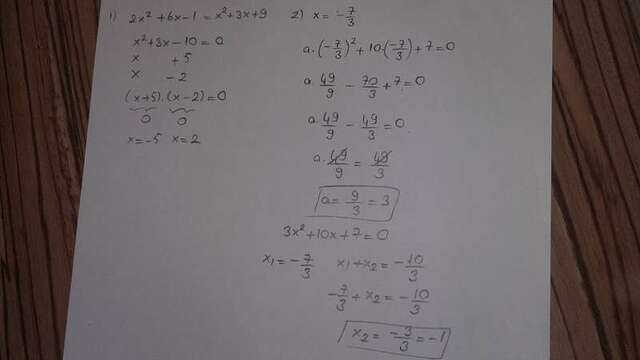 1) 2x² + 6x - 1 = x² + 3x + 9
x² + 3x - 10 = 0
x +5
x -2
(x+5).(x-2) = 0
0 0
x = -5 x = 2
2) x = -7/3
a.(-7/3)² + 10.(-7/3) + 7 = 0
a. 49/9 - 70/3 + 7 = 0
a. 49/9 - 49/3 = 0
a. 49/9 = 49/3
a = 9/3 = 3
3x² + 10x + 7 = 0
x₁ = -7/3 x₁ + x₂ = -10/3
-7/3 + x₂ = -10/3
x₂ = -3/3 = -1